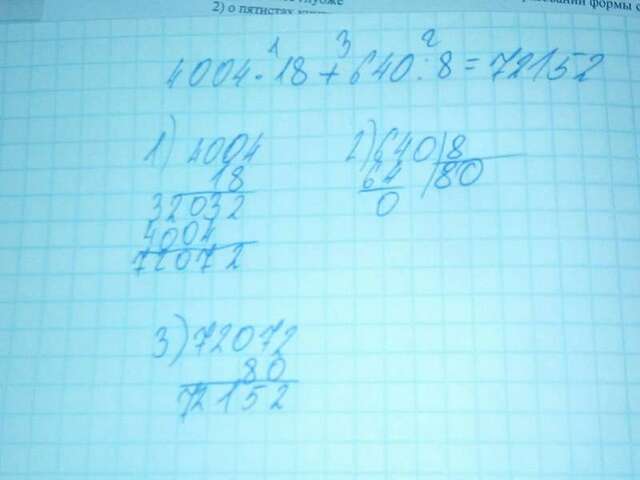 2) о пятистах
формы с
1 3 2
4004 · 18 + 640 : 8 = 72152
1) 4004
18
32032
4004
72072
2) 640 8
64 80
0
3) 72072
80
72152